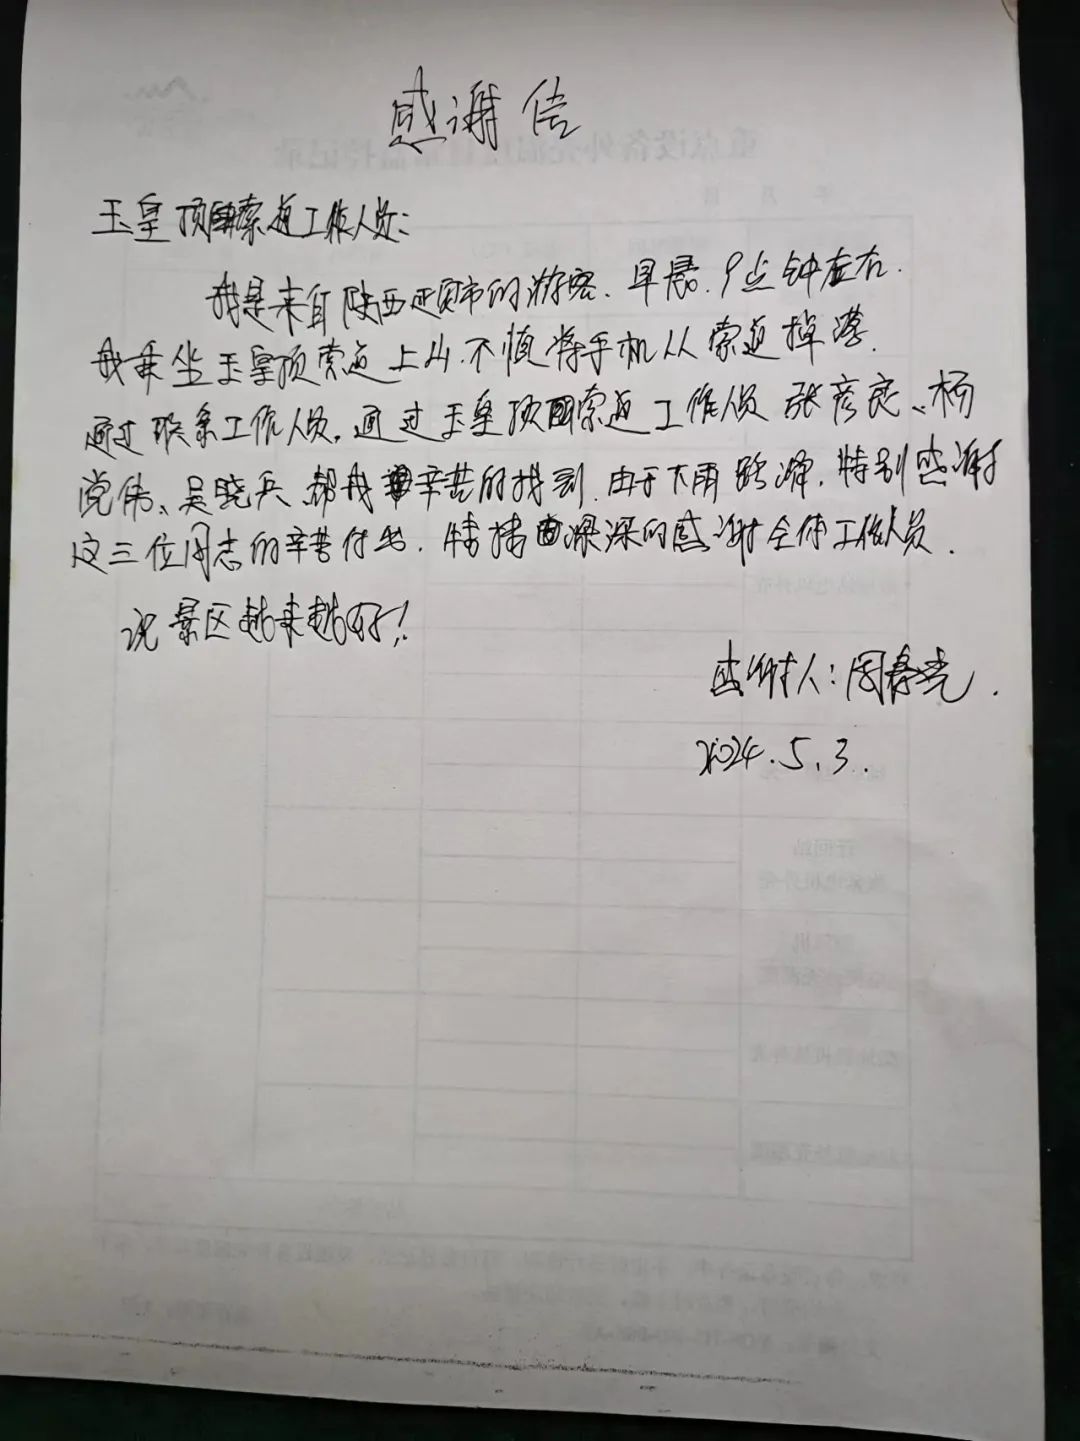 感谢信
玉皇顶索道工作人员:
我是来自陕西延安市的游客、早晨.9点钟左右.
我乘坐玉皇顶索道上山.不慎将手机从索道掉落.
通过联系工作人员,通过玉皇顶索道工作人员张彦良、杨
党伟、吴晓兵帮我辛苦的找到.由于下雨路滑,特别感谢
这三位同志的辛苦付出.深深的感谢全体工作人员.
祝景区越来越好!
感谢人:周春光.
2024.5.3.